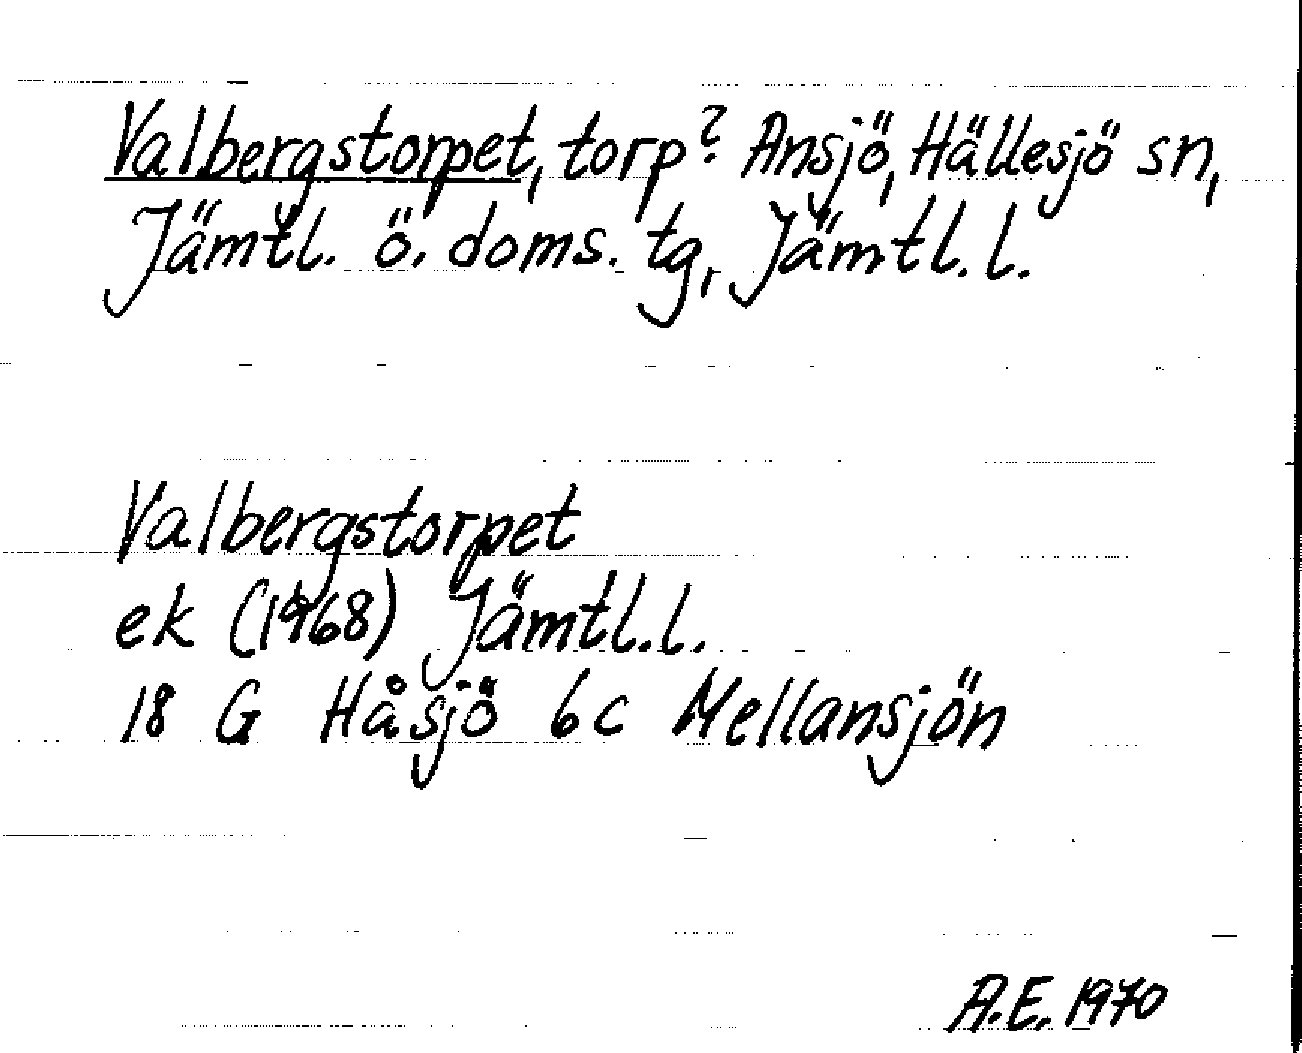 Valbergstorpet, torp? Ansjö, Hällesjö sn,
Jämtl. ö. doms. tg, Jämtl. l.
Valbergstorpet
ek (1968) Jämtl. l.
18 G Håsjö 6c Mellansjön
A.E. 1970